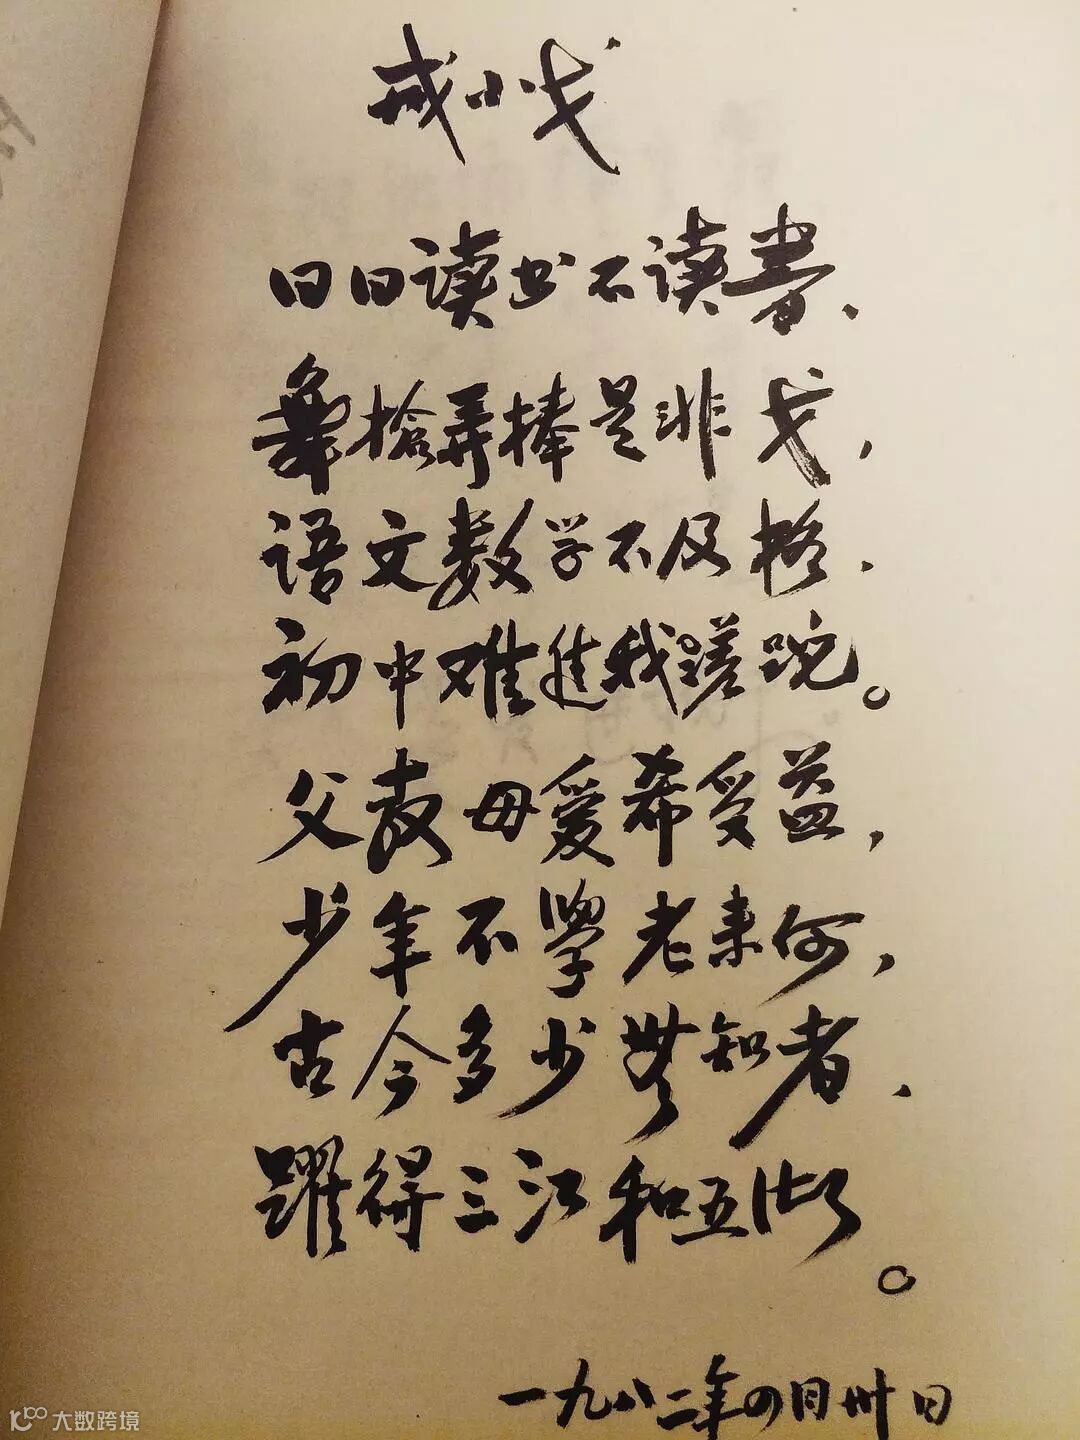 戒小戈
日日读书不读書、
舞槍弄棒是非戈，
语文数学不及格．
初中难进我蹉跎。
父教母爱希受益，
少年不學老来何，
古今多少無知者、
躍得三江和五湖。
一九八二年四月卅日
大数跨境